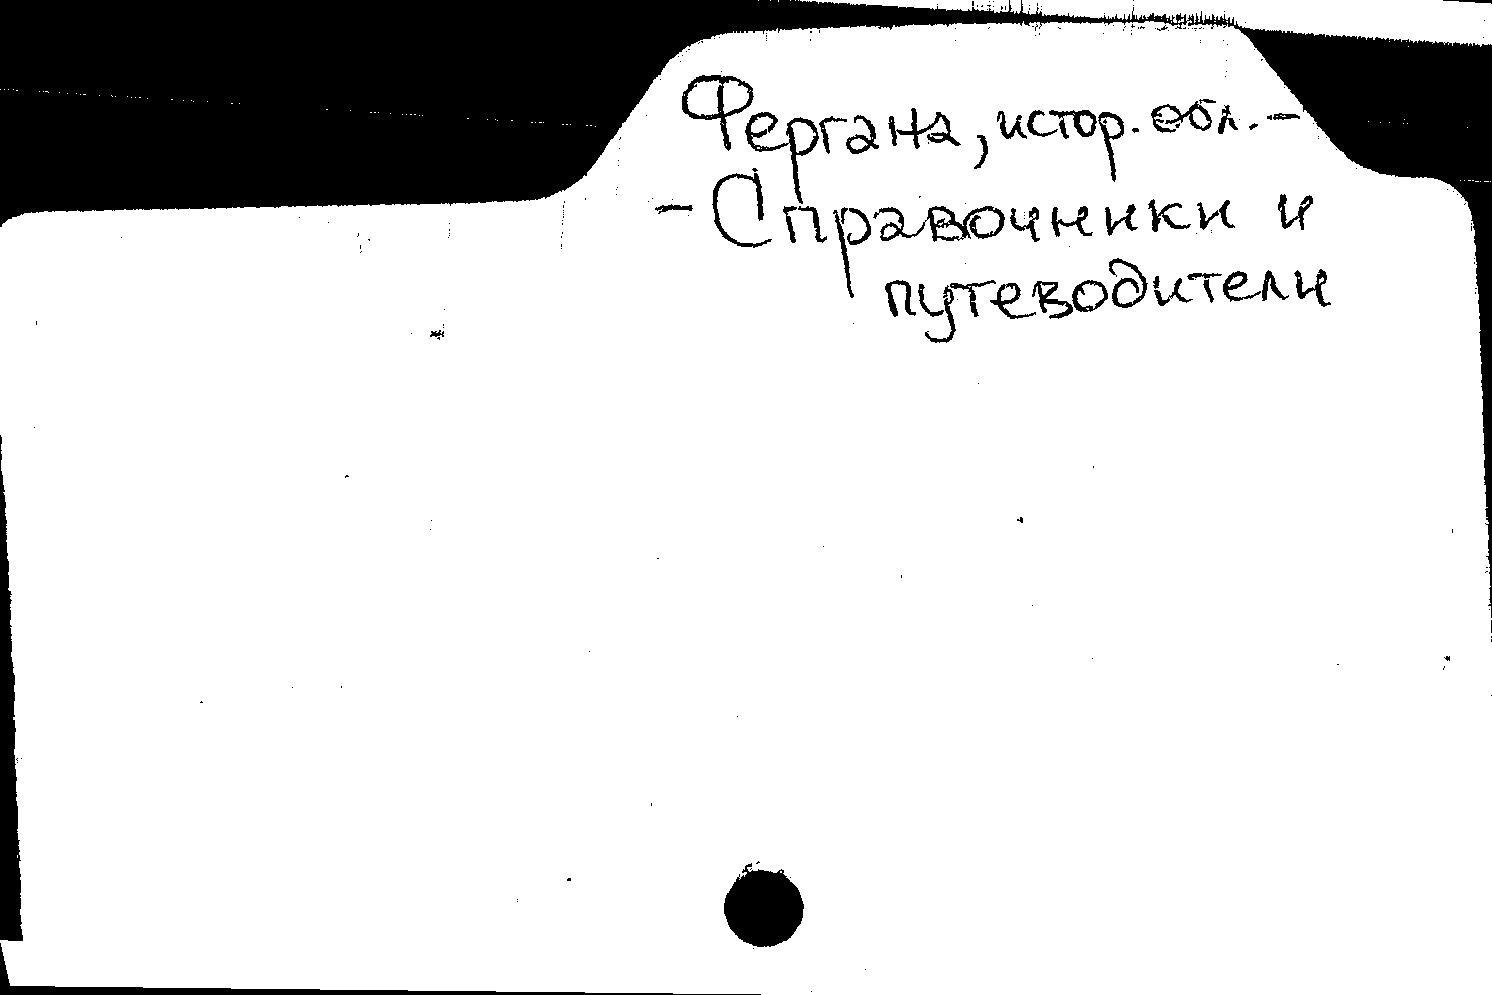 Фергана, истор. обл. –
– Справочники и
путеводители